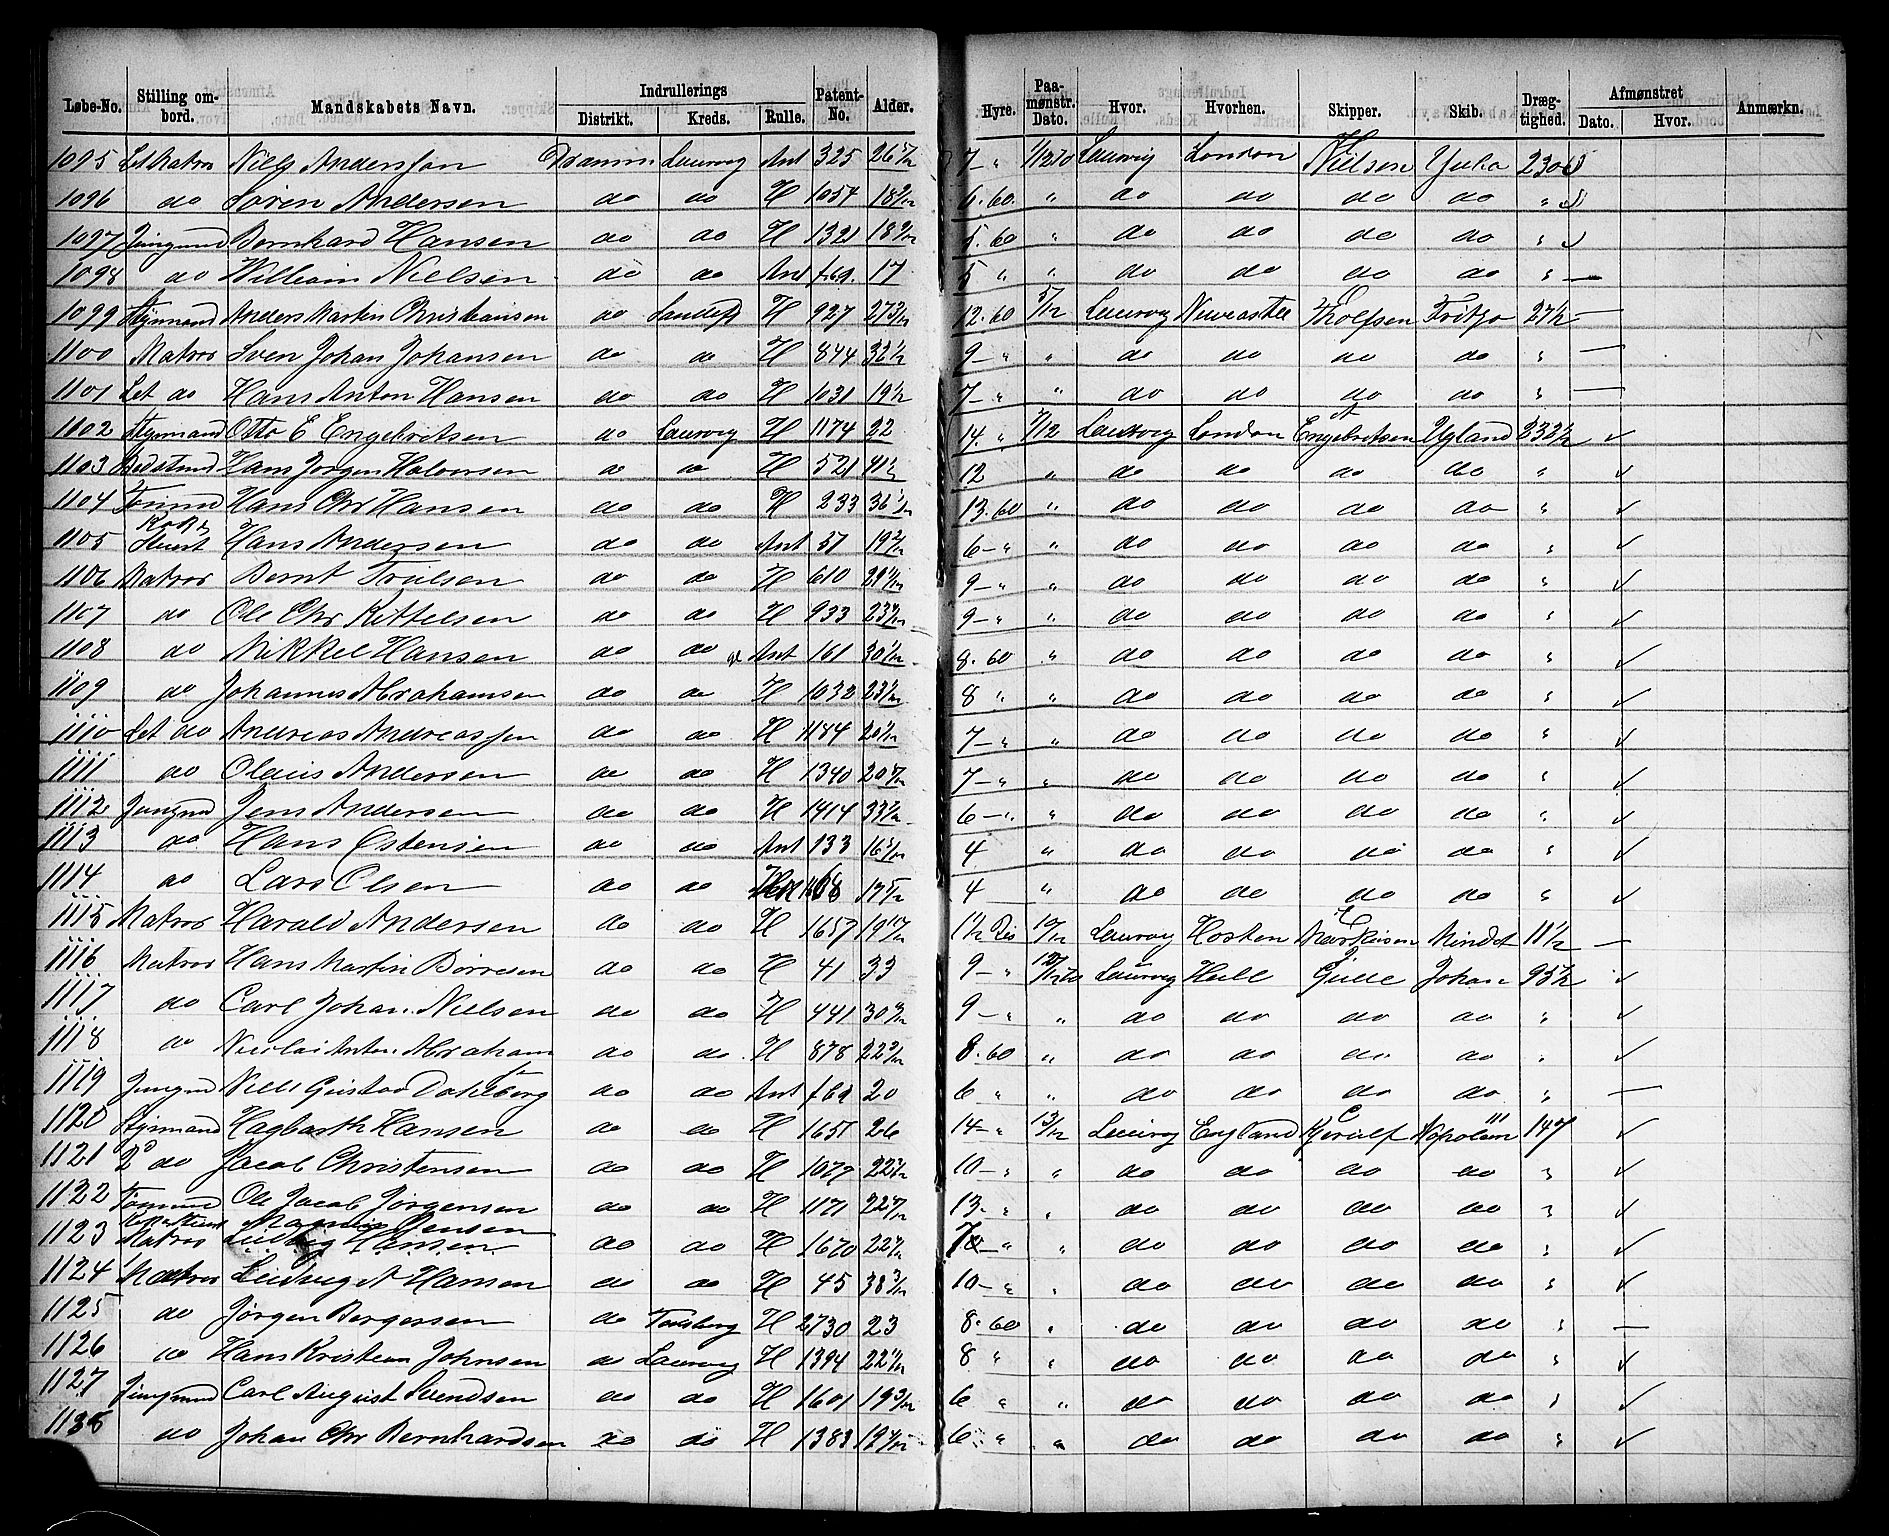 Løbe-No. Stilling ombord. Mandskabets Navn. Indrullerings Distrikt. Kreds. Rulle. Patent-No. Alder. Hyre. Paamønstr. Dato. Hvor. Hvorhen. Skipper. Skib. Drægtighed. Afmønstret Dato. Hvor. Anmærkn.
1095 Let Matros Niels Anderssen Dramm Laurvig Ant 325 26 7 - " Laurvig London Nielsen 230
1096 do Søren Andersen do do H 1054 18 6. 60. " do do do do "
1097 Jungmd Bernhard Hansen do do H 1321 18 5. 60 " do do do do "
1098 do William Nielsen do do Ant 17 5 " " do do do do " —
1099 Styrmand Anders Martin Christiansen do Sandefj H 927 27 12. 60 5/12 Laurvig Newcastle Tholfsen Fritzo 27½ —
1100 Matros Sven Johan Johansen do do H 844 32 9 - " " do do do do " —
1101 Let do Hans Anton Hansen do do H 1031 19½ 7 - " " do do do do " —
1102 Styrmand Otto E Engebretsen do Laurvig H 1174 22 14. " 7/12 Laurvig London Engebretsen Ugland 232½ ✓
1103 Hans Jørgen Halvorsen do do H 521 41 12 " do do do do " ✓
1104 Tømmd Hans Chr Hansen do do H 233 36 13. 60 " do do do do " ✓
1105 Kok & Stuert Hans Andersen do do Ant 57 19 6 - " " do do do do " ✓
1106 Matros Bernt Trulsen do do H 610 9 - " " do do do do " ✓
1107 do Ole Chr Kittelsen do do H 933 23 9 - " " do do do do " ✓
1108 do Nikkel Hansen do do Ant 161 30 8. 60 " do do do do " ✓
1109 do Johannes Abrahamsen do do H 1032 23 8 " " do do do do " ✓
1110 Let do Andreas Andreassen do do H 1184 20 7 - " " do do do do " ✓
1111 do Olaus Andersen do do H 1340 20 7 - " " do do do do " ✓
1112 Jungmd Jens Andersen do do H 1414 33 6 - " " do do do do " ✓
1113 do Hans Østensen do do Ant 133 16 4 " do do do do " ✓
1114 do Lars Olsen do do 17 4 " do do do do " ✓
1115 Matros Harald Andersen do do H 1657 19 1½ 10/12 Laurvig Horten Mindet 11½ —
1116 Matros Hans Martin Børresen do do H 41 33 9 - " Laurvig Hull Gulle Johan 95½ ✓
1117 do Carl Johan Nielsen do do H 441 30 9 - " " do do do do " ✓
1118 do Nicolai Anton Abraham do do H 878 22 8. 60 " do do do do " ✓
1119 Jungmd Niels Gustav Dahlberg do do Ant 20 6 " " do do do do " —
1120 Styrmand Hagbarth Hansen do do H 1651 26 14 - " 13/12 Laurvig England Kjerulf Napoleon III 147 ✓
1121 2 do Jacob Christensen do do H 1079 22 10 - " " do do do do " ✓
1122 Tømmd Ole Jacob Jørgensen do do H 1171 22 13. " " do do do do " ✓
1123 Matros Ludvig Hansen Jensen do do H 1670 22 " " do do do do " ✓
1124 Matros Ludvig A Hansen do do H 45 38 3/12 10 - " " do do do do " ✓
1125 do Jørgen Børgessen do Tønsberg H 2730 23 8. 60 " do do do do " —
1126 do Hans Kristian Johnsen do Laurvig H 1394 22 8 " " do do do do " ✓
1127 Jungmd Carl August Svendsen do do H 1601 19 3/12 6 " " do do do do " ✓
do Johan Chr Bernhardsen do do H 1383 6 " " do do do do " ✓